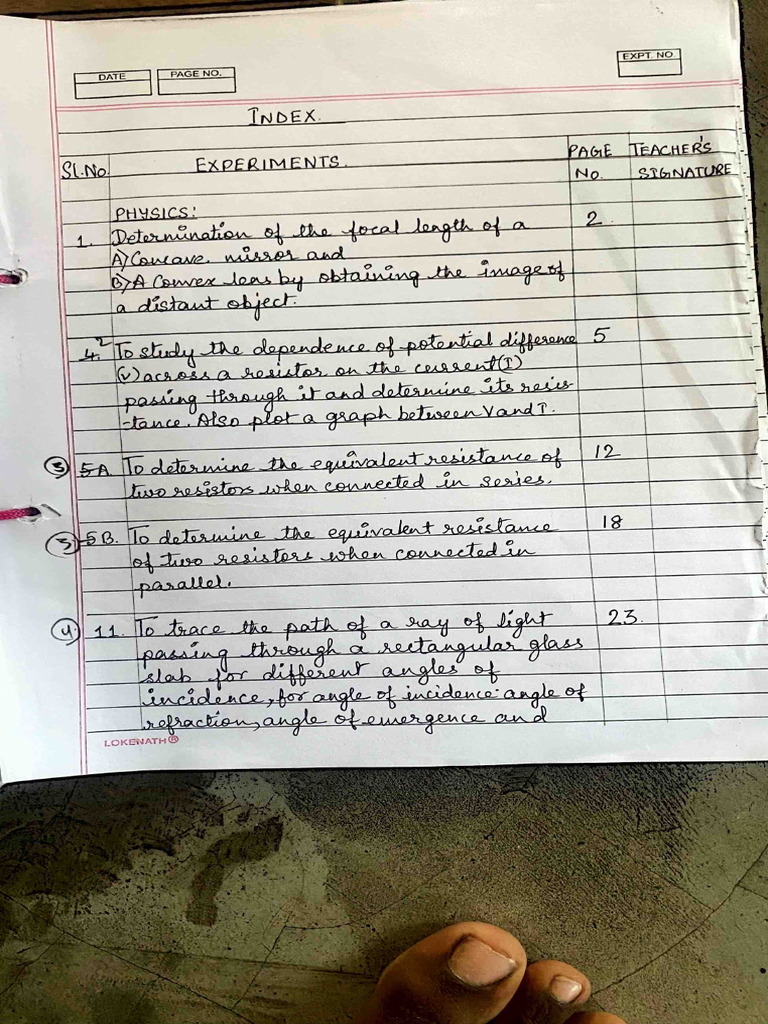 DATE PAGE NO. EXPT. NO.
INDEX.
Sl.No. EXPERIMENTS. PAGE No. TEACHER'S SIGNATURE
PHYSICS:
1. Determination of the focal length of a 2.
A) Concave mirror and
B) A Convex lens by obtaining the image of
a distant object.
4. 2 To study the dependence of potential difference 5
(v) across a resistor on the current (I)
passing through it and determine its resis-
-tance. Also plot a graph between V and I.
3 5A. To determine the equivalent resistance of 12
two resistors when connected in series.
3 5B. To determine the equivalent resistance 18
of two resistors when connected in
parallel.
4 11. To trace the path of a ray of light 23.
passing through a rectangular glass
slab for different angles of
incidence, for angle of incidence angle of
refraction, angle of emergence and
LOKENATH®